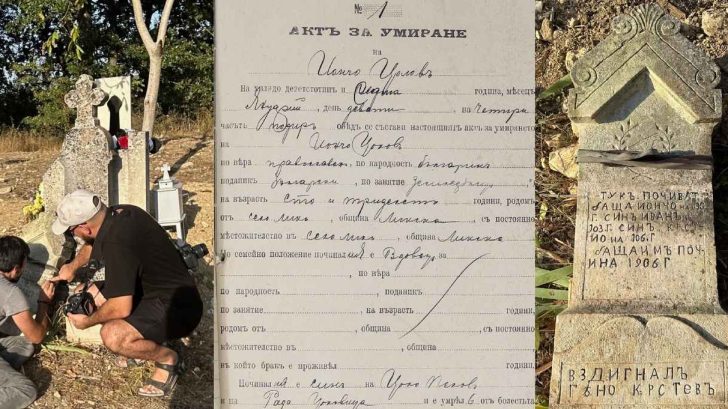 № 1
АКТЪ ЗА УМИРАНЕ
на
Йончо Цоловъ
На хилядо деветстотинъ и седма година, мѣсецъ
Януарий, день девети, на четири
часътъ подиръ обѣдъ се състави настоящиятъ актъ за умирането
на Йончо Цоловъ
по вѣра православенъ, по народность българинъ
поданикъ български, по занятие земледѣлецъ
на възрасть сто и тридесеть години, родомъ
отъ село Лико, община Ликска, съ постоянно
мѣстожителство въ село Лико, община Ликска
По семейно положение починалий е вдовецъ за
, по вѣра
по народность, поданикъ
по занятие, на възрасть години,
родомъ отъ, община, съ постоянно
мѣстожителство въ, община
въ който бракъ е прѣживѣлъ години.
Починалий е синъ на Цоло
и на Рада и е умрѣлъ отъ болесть
ТУК ПОЧИВАТ
ЙОНЧО
Г СИН ИВАН
903 Г СИН КРС
ЙО НА 906 Г
БАЩА ИМ ПОЧ
ИНА 1906 Г
ВЗДИГНАЛ
ГЬНО КРСТЕВ